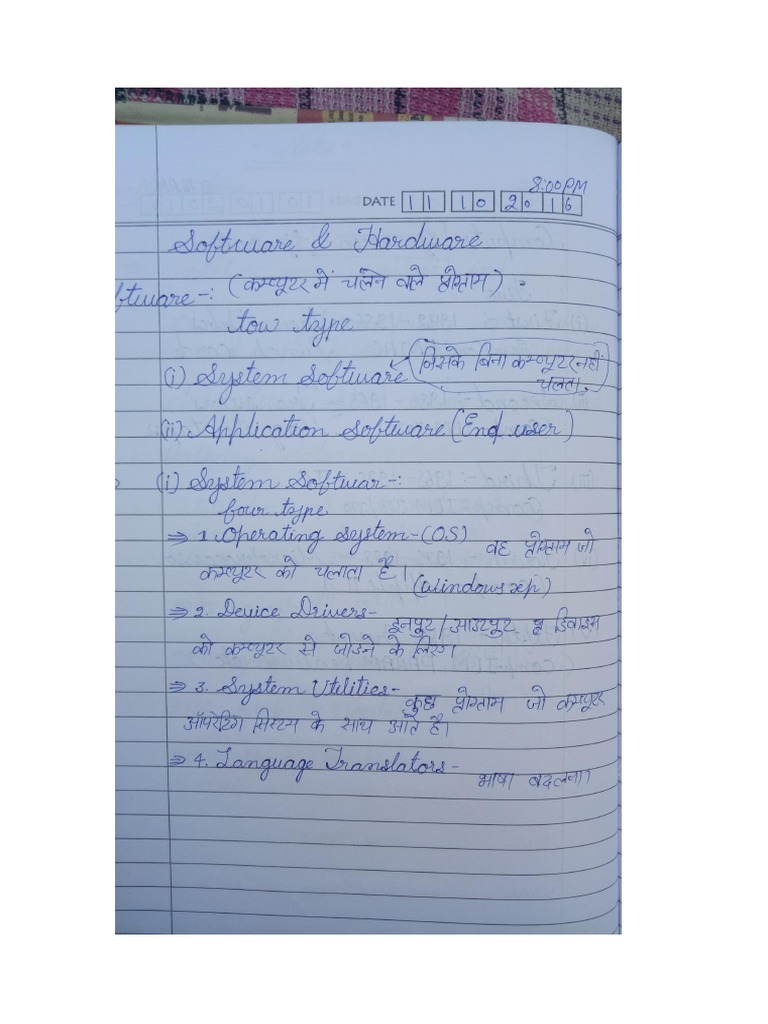 8:00PM
DATE 11 10 2016
Software & Hardware
ftware-: (कम्प्यूटर में चलने वाले प्रोग्राम)
tow type
(i) System Software (जिसके बिना कम्प्यूटर नहीं
चलता
(ii) Application Software (End user)
(i) System Softwar-:
four type
⇒ 1. Operating System-(OS) वह प्रोग्राम जो
कम्प्यूटर को चलाता है। (Windows xp)
⇒ 2. Device Drivers- इनपुट/आउटपुट डिवाइस
को कम्प्यूटर से जोडने के लिए।
⇒ 3. System Utilities- कुछ प्रोग्राम जो कम्प्यूटर
ऑपरेटिंग सिस्टम के साथ आते है।
⇒ 4. Language Translators- भाषा बदलना।